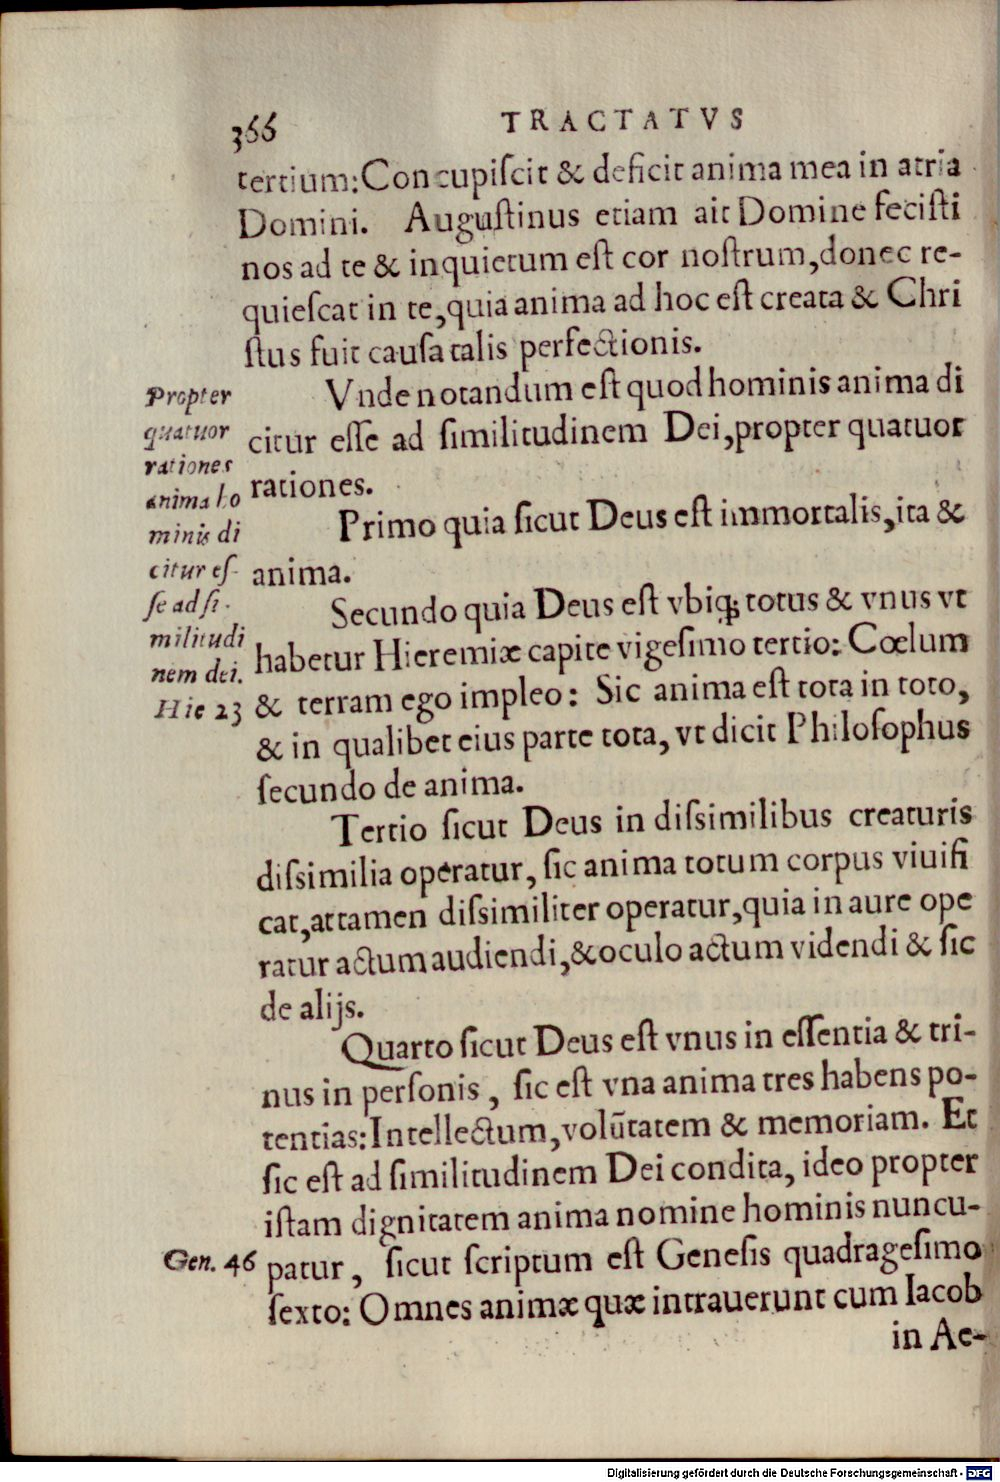 366
TRACTATVS
tertium: Concupiſcit & deficit anima mea in atria
Domini. Auguſtinus etiam ait Domine feciſti
nos ad te & inquietum eſt cor noſtrum, donec re-
quieſcat in te, quia anima ad hoc eſt creata & Chri
ſtus fuit cauſa talis perfectionis.
Vnde notandum eſt quod hominis anima di
citur eſſe ad ſimilitudinem Dei, propter quatuor
rationes.
Propter
quatuor
rationes
anima ho
minis di
citur eſ-
ſe ad ſi-
militudi
nem dei.
Primo quia ſicut Deus eſt immortalis, ita &
anima.
Secundo quia Deus eſt vbiqꝫ totus & vnus vt
habetur Hieremiæ capite vigeſimo tertio: Cœlum
& terram ego impleo: Sic anima eſt tota in toto,
Hie 23
& in qualibet eius parte tota, vt dicit Philoſophus
ſecundo de anima.
Tertio ſicut Deus in diſsimilibus creaturis
diſsimilia operatur, ſic anima totum corpus viuifi
cat, attamen diſsimiliter operatur, quia in aure ope
ratur actum audiendi, & oculo actum videndi & ſic
de alijs.
Quarto ſicut Deus eſt vnus in eſſentia & tri-
nus in perſonis, ſic eſt vna anima tres habens po-
tentias: Intellectum, volũtatem & memoriam. Et
ſic eſt ad ſimilitudinem Dei condita, ideo propter
iſtam dignitatem anima nomine hominis nuncu-
Gen. 46
patur, ſicut ſcriptum eſt Geneſis quadrageſimo
ſexto: Omnes animæ quæ intrauerunt cum Iacob
in Ae-
Digitalisierung gefördert durch die Deutsche Forschungsgemeinschaft - DFG